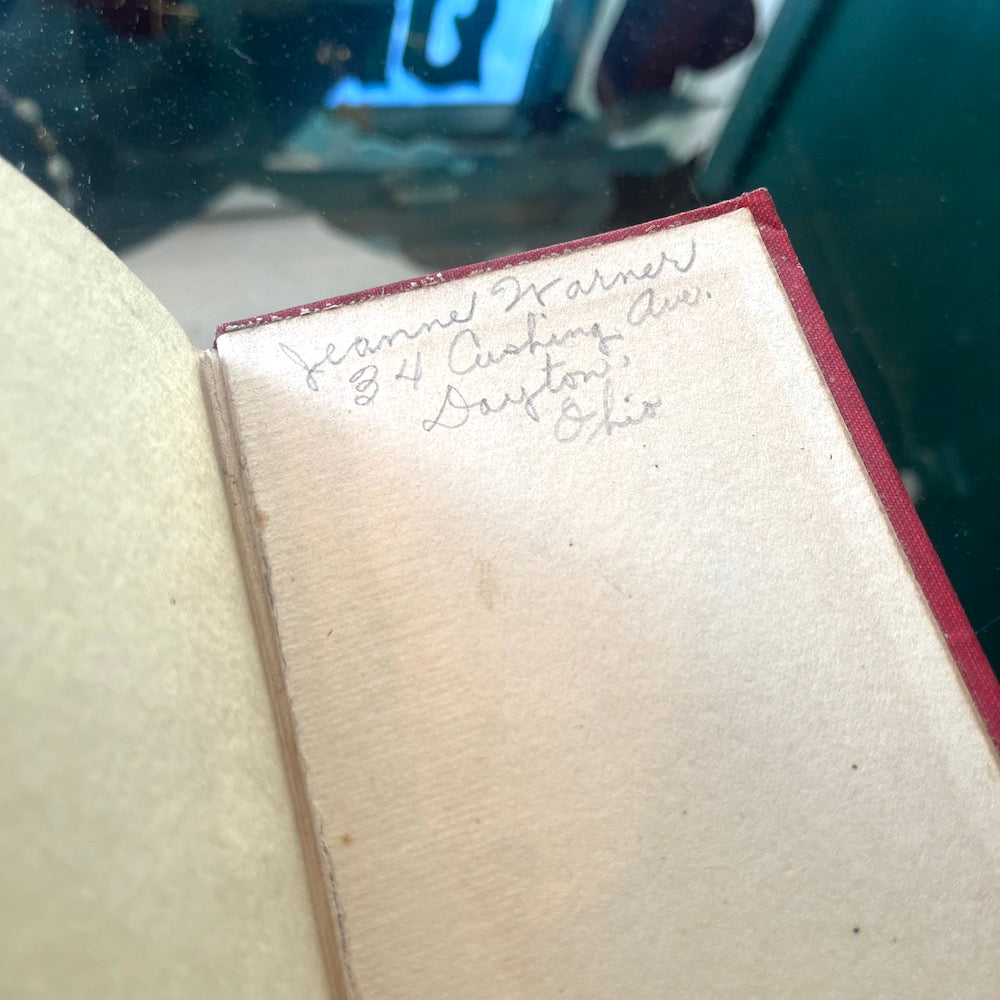 Jeanne Warner
34 Cushing Ave.
Dayton,
Ohio